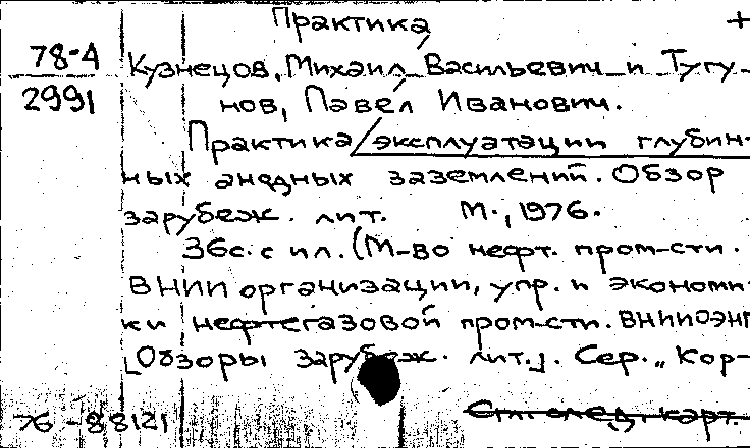 Практика +
78-4 Кузнецов, Михаил Васильевич и Тугу-
2991 нов, Павел Иванович.
Практика/эксплуатации глубин-
ных анодных заземлений. Обзор
зарубеж. лит. М., 1976.
36с. с ил. (М-во нефт. пром-сти.
ВНИИ организации, упр. и экономи-
ки нефтегазовой пром-сти. ВНИИОЭНГ
[Обзоры зарубеж. лит.]. Сер. „Кор-
76-88121 См. след. карт.